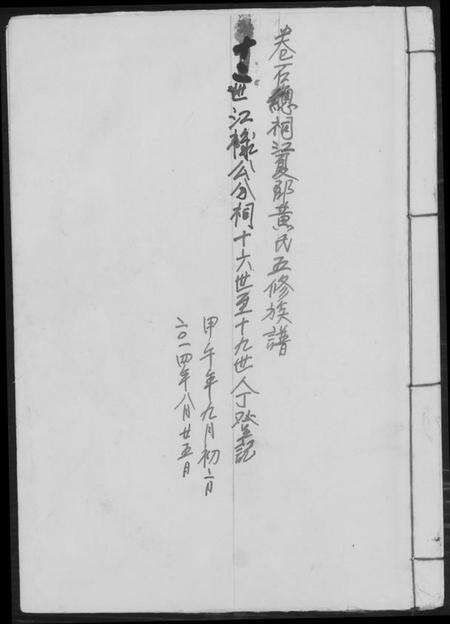 卷石總祠江夏郡黃氏五修族譜
十三世江樣公分祠十六世至十九世人丁登記
甲午年九月初二日
二〇一四年八月廿五日